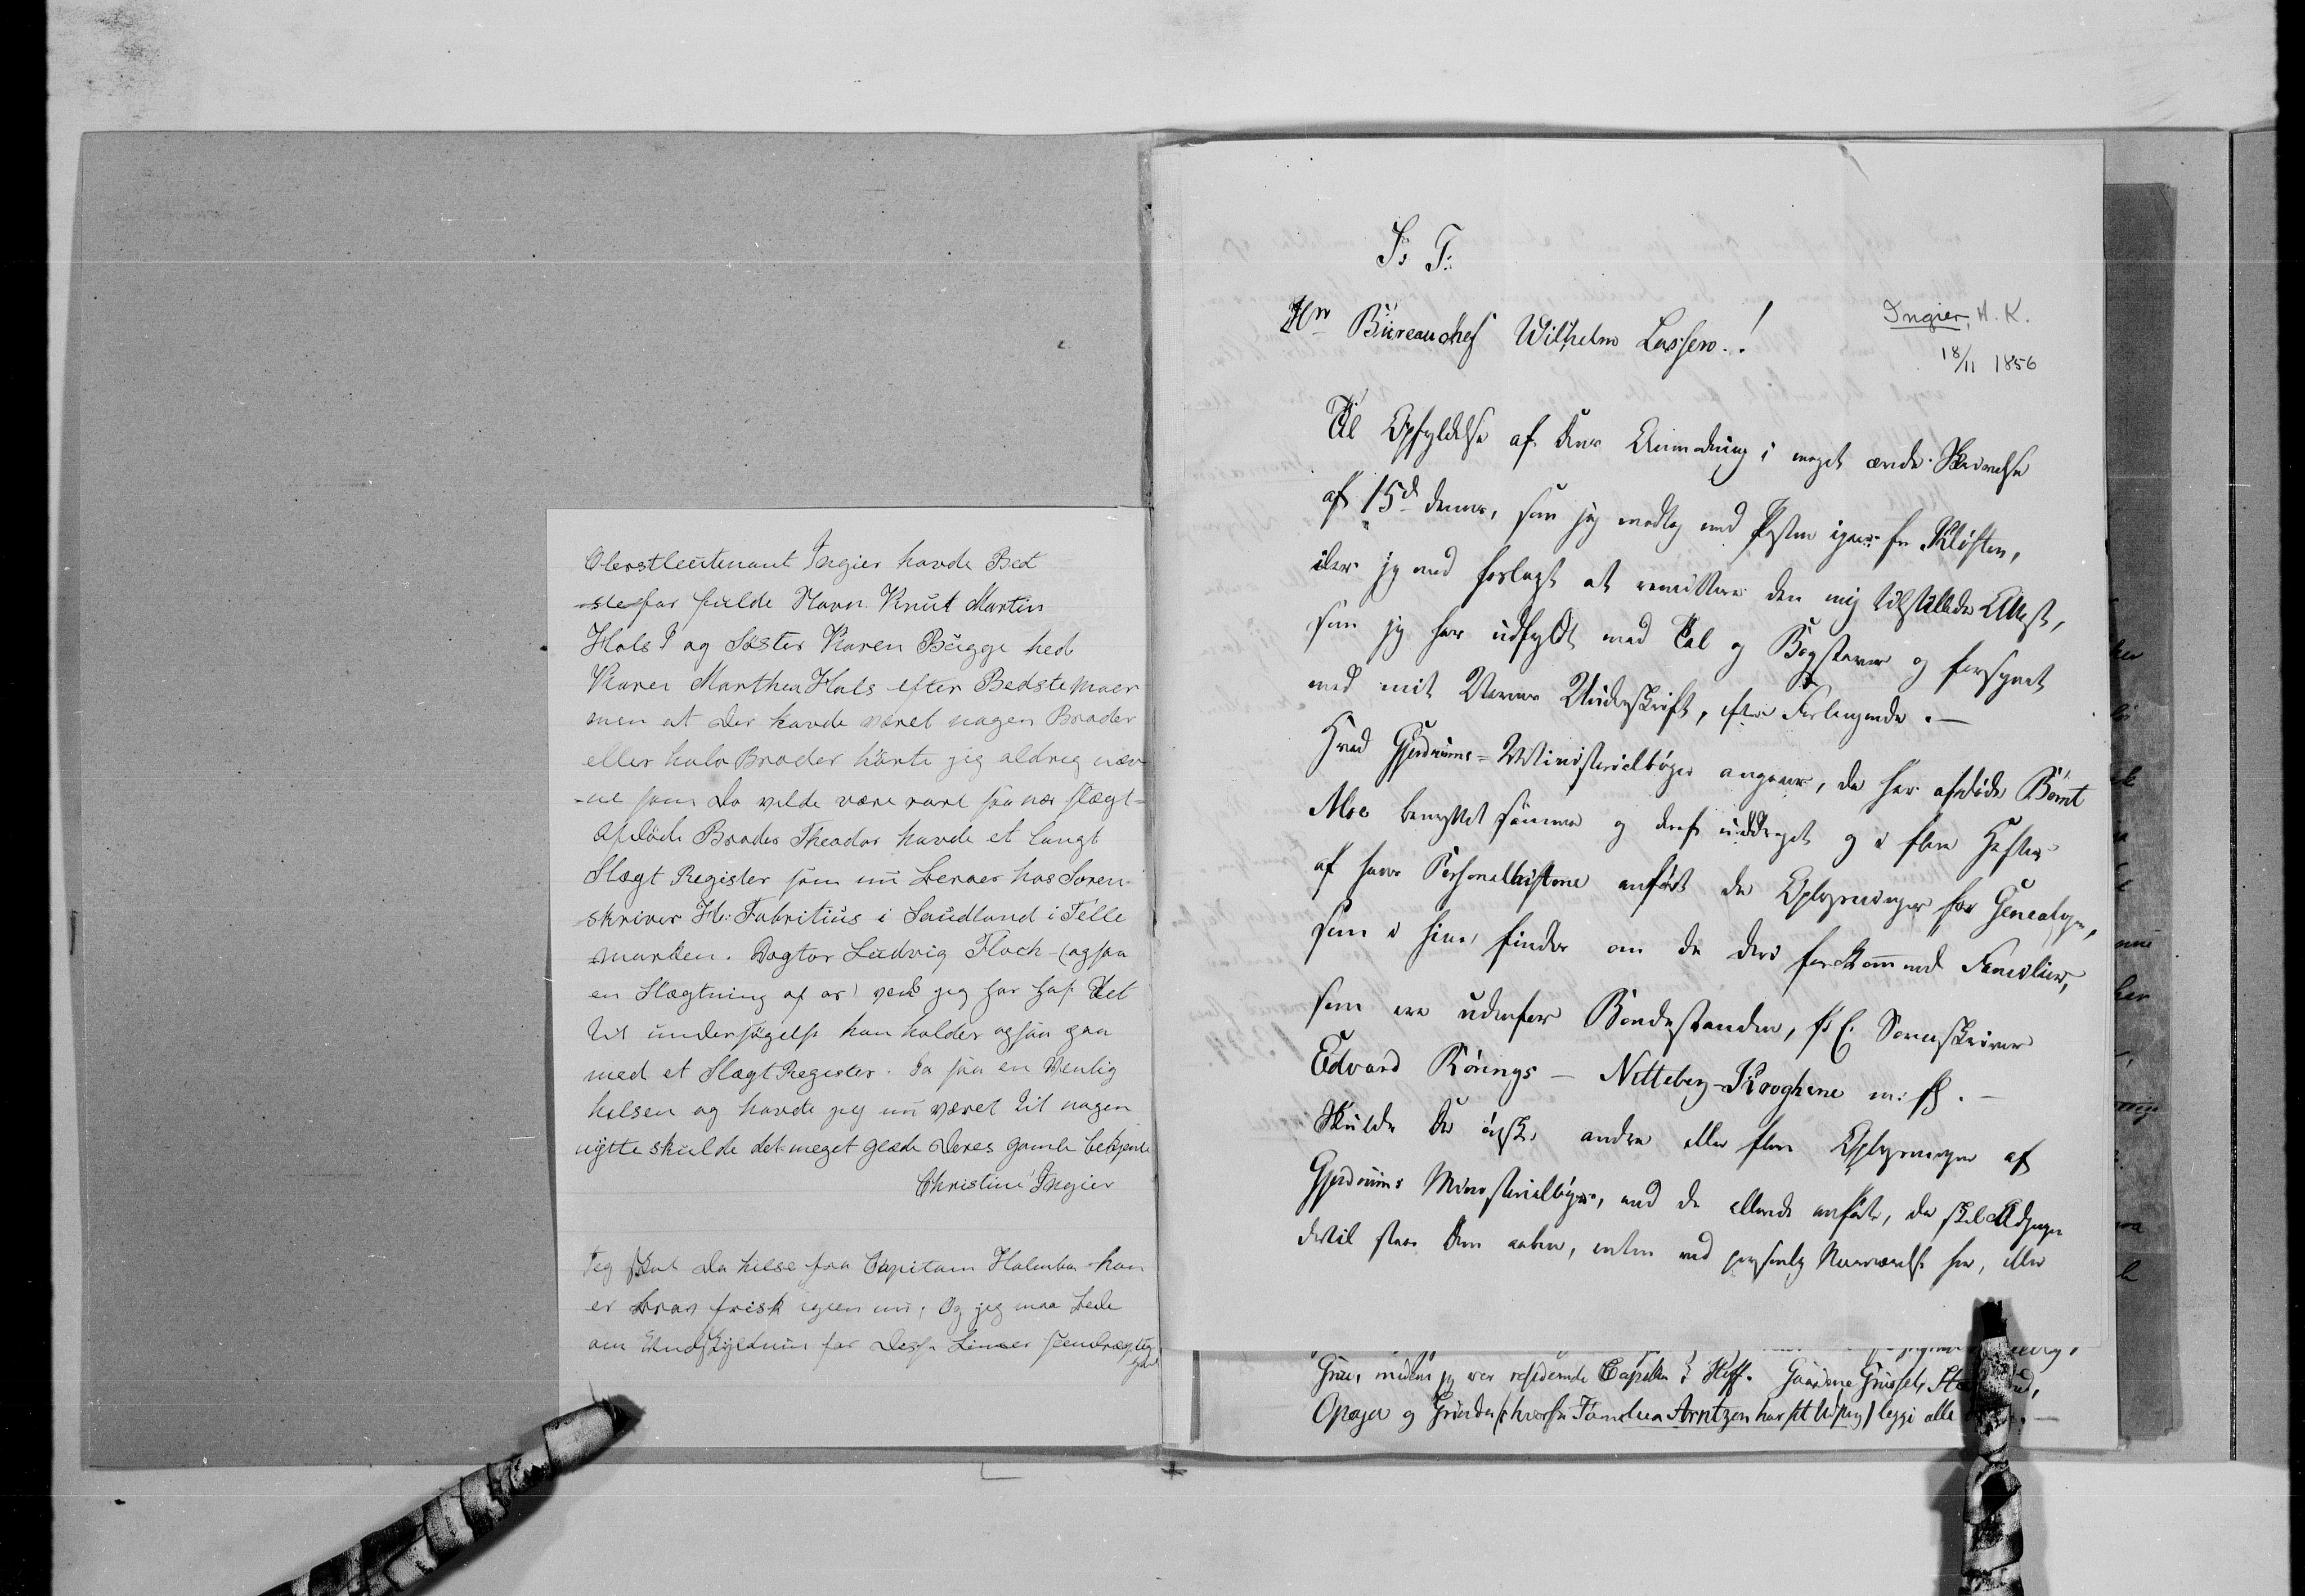 Oberstleutenant Ingier havde Bed
-stefar fulde Navn Knut Martin
Hals? og Söster Karen Bugge hed
Karen Marthea Hals efter Bedstemoer
men at der havde været nogen Broder
eller halv Broder hörte jeg aldreg næv
-ne som da vilde være rart saa nær slægt-
Afdöde Broder Theodor havde et langt
Slægt Register som nu beroer hos Soren-
skriver H: Fabritius i Saudland i Telle
marken. Dogtor Ludvig Floch (ogsaa
en Slægtning af os)
til undersögelse han holder ogsaa paa
med et Slægt Register. Ja saa en Venlig
helsen og havde jeg nu været til nogen
nÿtte skulde det meget glæde Deres gamle bekjente
Christine Ingier
Jeg skal da hilse fra Capitain Holmboe han
er brav frisk igjen nu, Og jeg maa bede
om Undskyldning for disse Linier
S: T:
Hr Büreauchef Wilhelm Lassen.!
Ingier, H. K.
18/11 1856
Til Opfyldelse af Deres Anmodning i meget ærede Skrivelse
af 15d dennes, som jeg modtog med Posten igaar fra Kløften,
iler jeg med forlagt at remittere den mig tilstillede Attest,
som jeg har udfyldt med Tal og Bogstaver og forsynet
med mit Navns Underskrift, efter Forlangende. —
Hvad Gjerdrums-Ministerialbøger angaaer, da har afdøde Bernt
Moe benyttet samme og deraf uddraget og i flere Hefter
af hans Personalhistorie anført de Oplysninger for Genealogen,
som i hine findes om de deri forekommende Familier,
som ere udenfor Bondestanden, f: E. Sorenskriver
Edvard Rörings — Nitteberg-Kroghene m: fl. —
Skulde De ønske andre eller flere Oplysninger af
Gjerdrums Ministerialbøger, end de allerede anførte, da skal Adgangen
dertil staae Dem aaben, enten ved personlig Nærværelse her, eller
Grue, medens jeg var residerende Capellan i Hoff. Gaardene Grüsset,
Opager og Grinder (hvorfra Familien Arntzen har sit Udspring) ligge alle